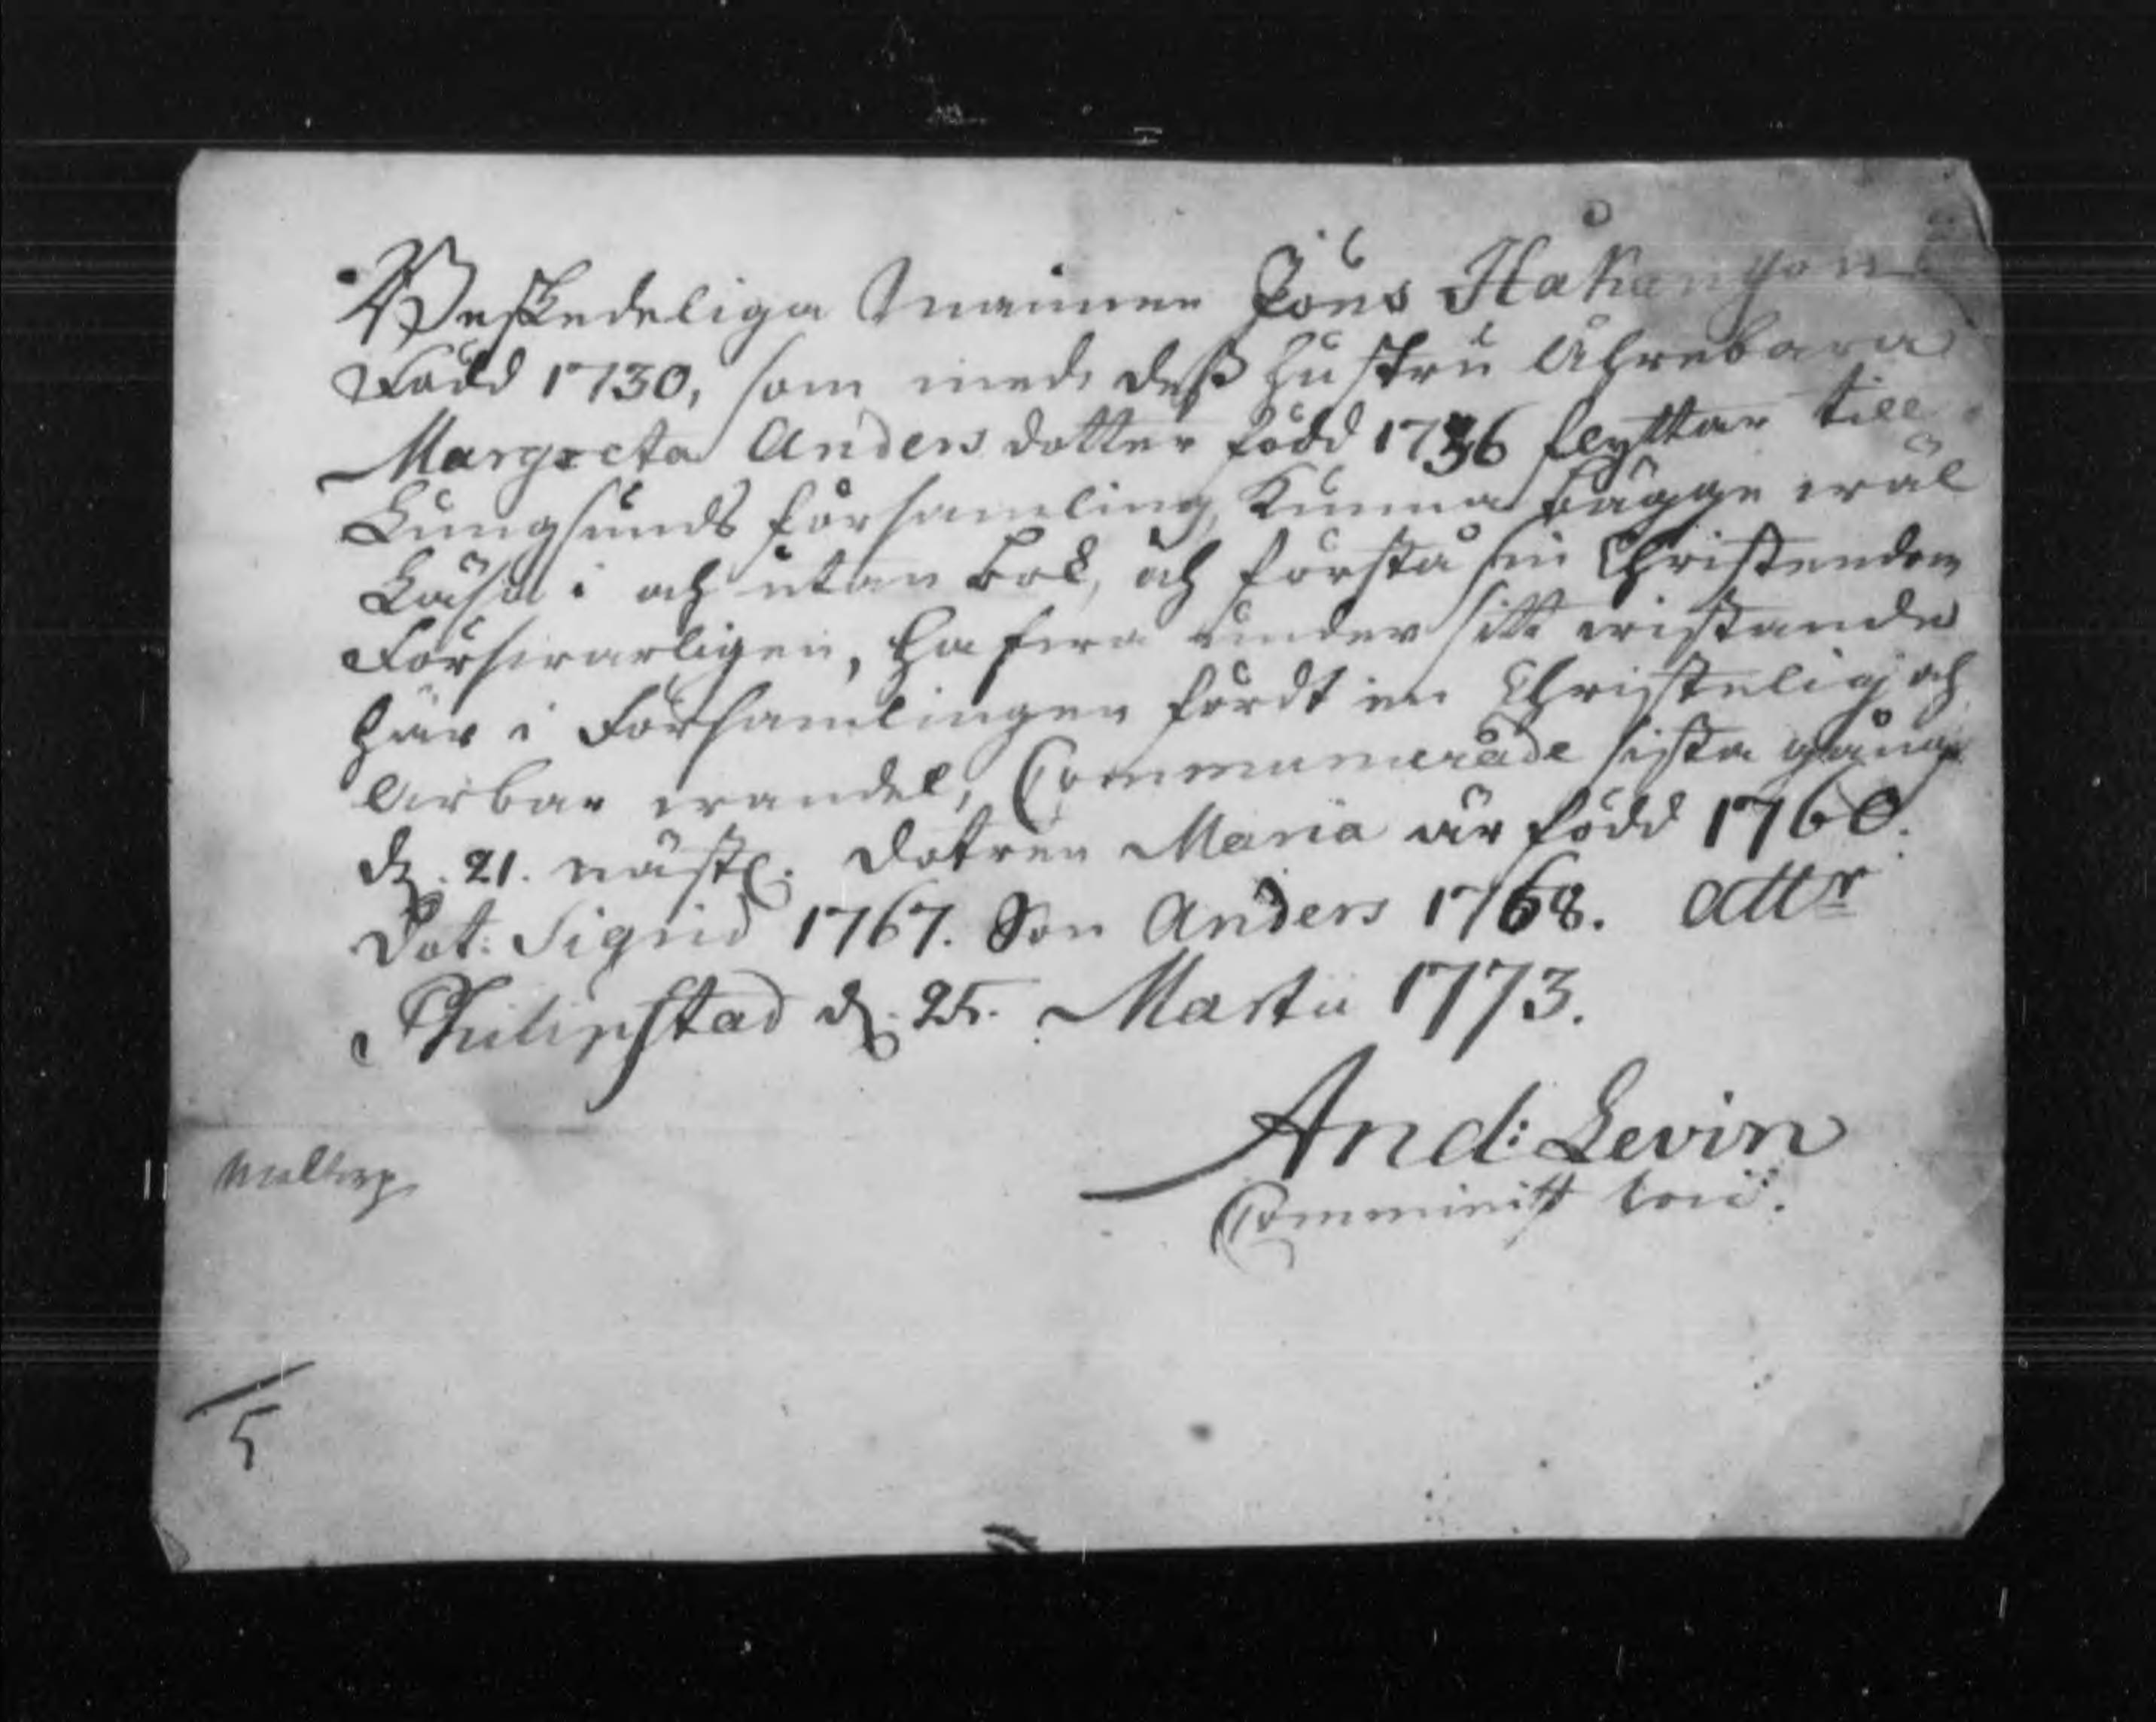 Beskedeliga Mannen Jöns Håkansson
Född 1730, som med deß hustru Ährebara
Margreta Anders dotter född 1736 flyttar till
Lungsunds församling, kunna bägge wäl
Läsa i och utan bok, och förstå sin Christendom
Förswarligen, hafwa under sitt wistande
här i Församlingen fördt en Christelig och
ärbar wandel, Communicerade sista gång
d. 21. nästl. Dotren Maria är född 1760.
Dot: Sigrid 1767. Son Anders 1768. Attr
Philipstad d. 25. Martii 1773.
And: Levin
Comminist
5